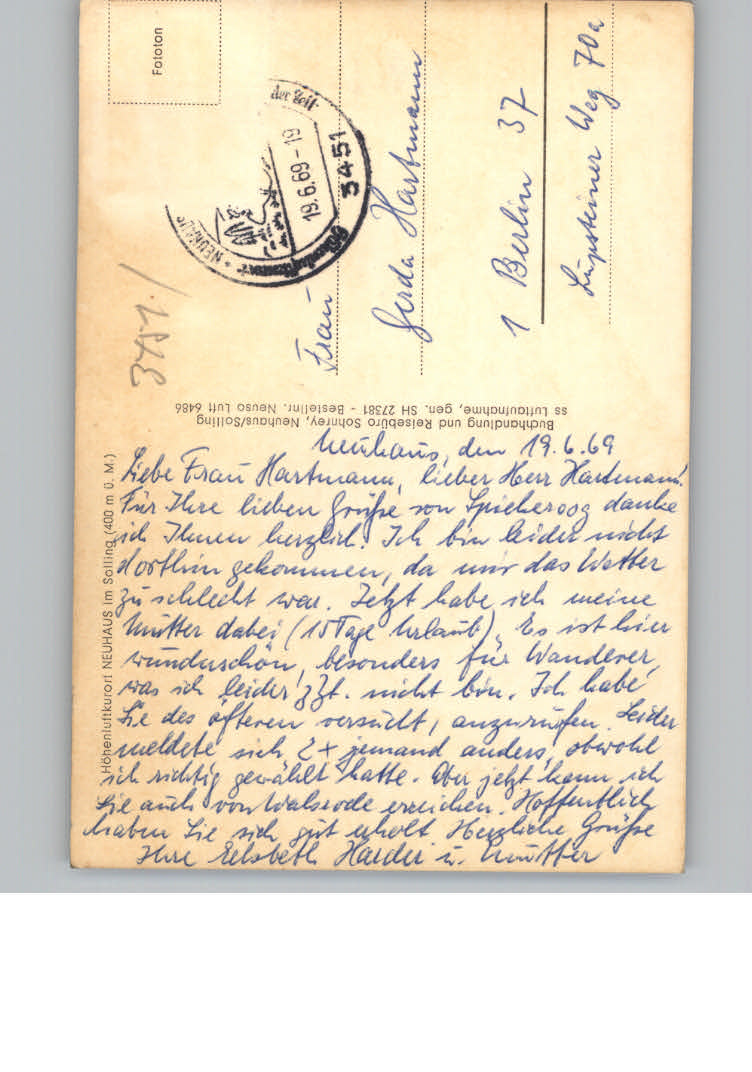 Fototon
der Zeit
19.6.69-19
3451
NEUHAUS
Höhenluftkurort
3451./
Frau
Gerda Hartmann
1 Berlin 37
Lupsteiner Weg 70a
Buchhandlung und Reisebüro Sohnrey, Neuhaus/Solling
ss Luftaufnahme, gen. SH 27381 - Bestellnr. Neuso Luft 6486
Höhenluftkurort NEUHAUS im Solling (400 m ü. M.)
Neuhaus, den 19.6.69
Liebe Frau Hartmann, lieber Herr Hartmann!
Für Ihre lieben Grüße von Spiekeroog danke
ich Ihnen herzlich. Ich bin leider nicht
dorthin gekommen, da mir das Wetter
zu schlecht war. Jetzt habe ich meine
Mutter dabei (10 Tage Urlaub). Es ist hier
wunderschön, besonders für Wanderer,
was ich leider zZt. nicht bin. Ich habe
Sie des öfteren versucht, anzurufen. Leider
meldete sich 2x jemand anders, obwohl
ich richtig gewählt hatte. Aber jetzt kann ich
Sie auch von Walsrode erreichen. Hoffentlich
haben Sie sich gut erholt. Herzliche Grüße
Ihre Elsbeth Harder u. Mutter